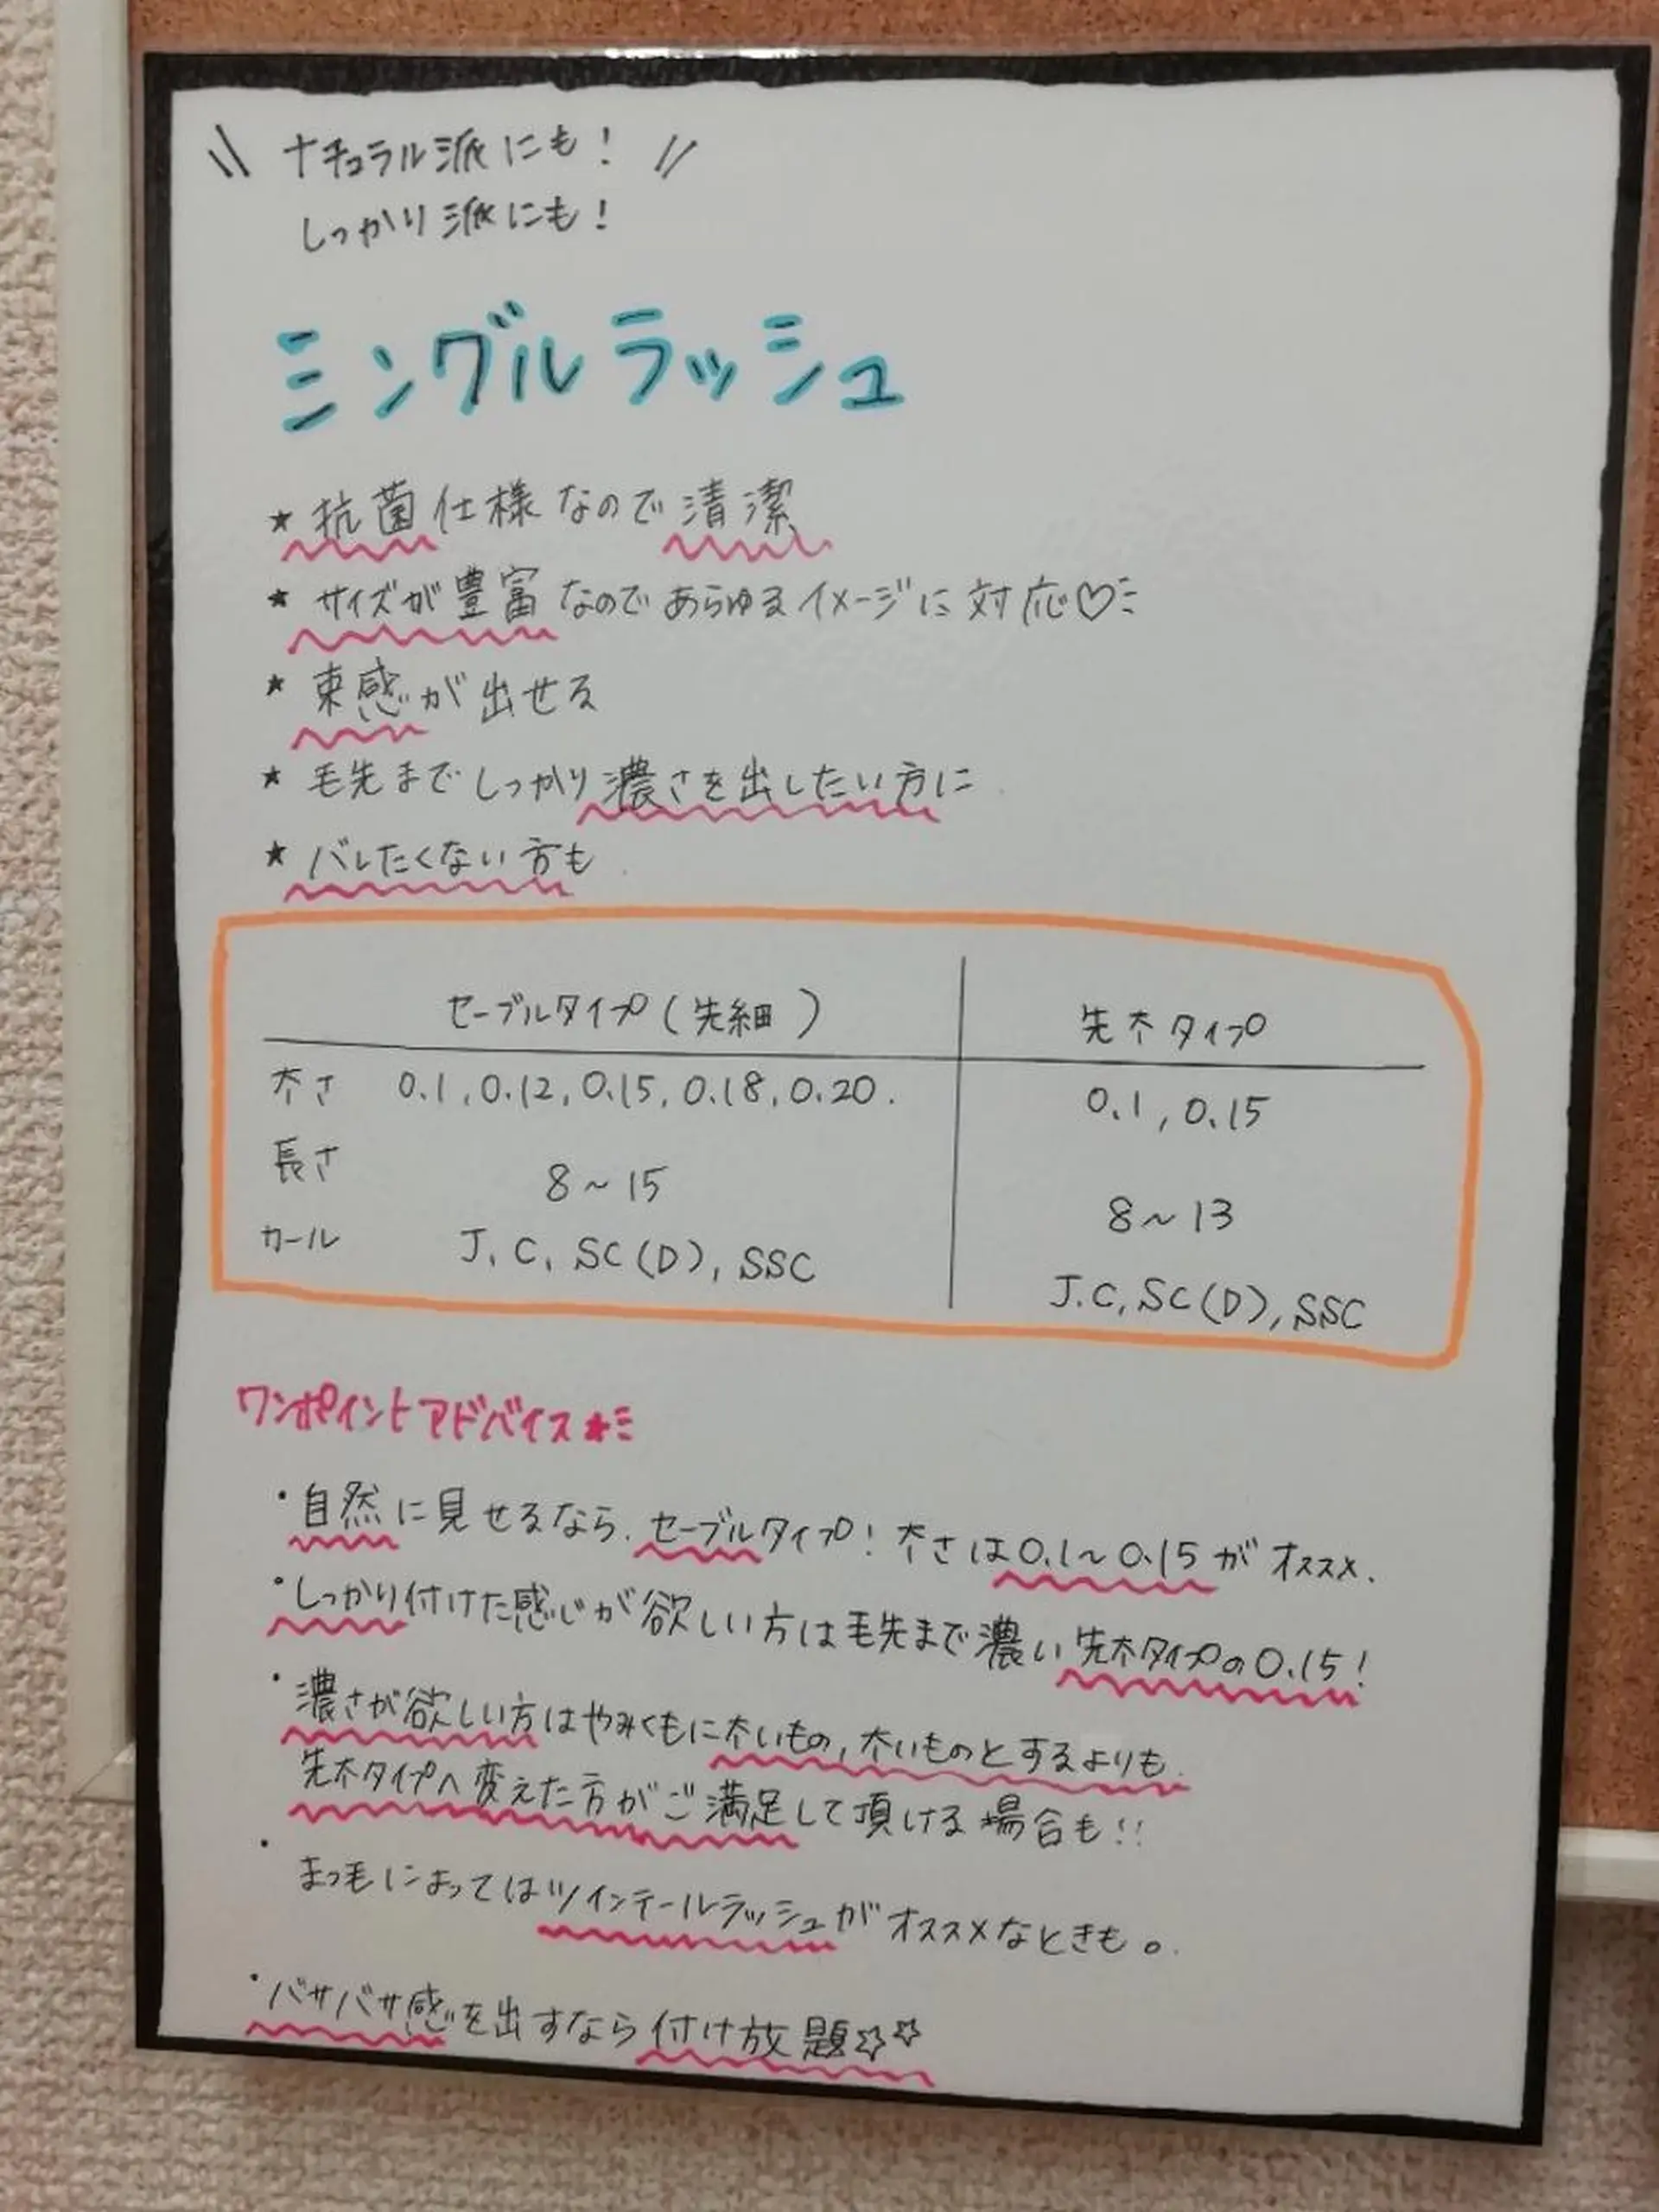 \\ ナチュラル派にも! //
しっかり派にも!
シングルラッシュ
★ 抗菌仕様なので清潔
★ サイズが豊富なのであらゆるイメージに対応♡
★ 束感が出せる
★ 毛先までしっかり濃さを出したい方に
★ バレたくない方も
セーブルタイプ(先細) 先太タイプ
太さ 0.1, 0.12, 0.15, 0.18, 0.20. 0.1, 0.15
長さ 8~15 8~13
カール J, C, SC(D), SSC J.C, SC(D), SSC
ワンポイントアドバイス★
・自然に見せるなら、セーブルタイプ! 太さは0.1~0.15がオススメ.
・しっかり付けた感じが欲しい方は毛先まで濃い先太タイプの0.15!
・濃さが欲しい方はやみくもに太いもの,太いものとするよりも
先太タイプへ変えた方がご満足して頂ける場合も!!
・まつ毛によってはツインテールラッシュがオススメなときも。
・バサバサ感を出すなら付け放題☆☆